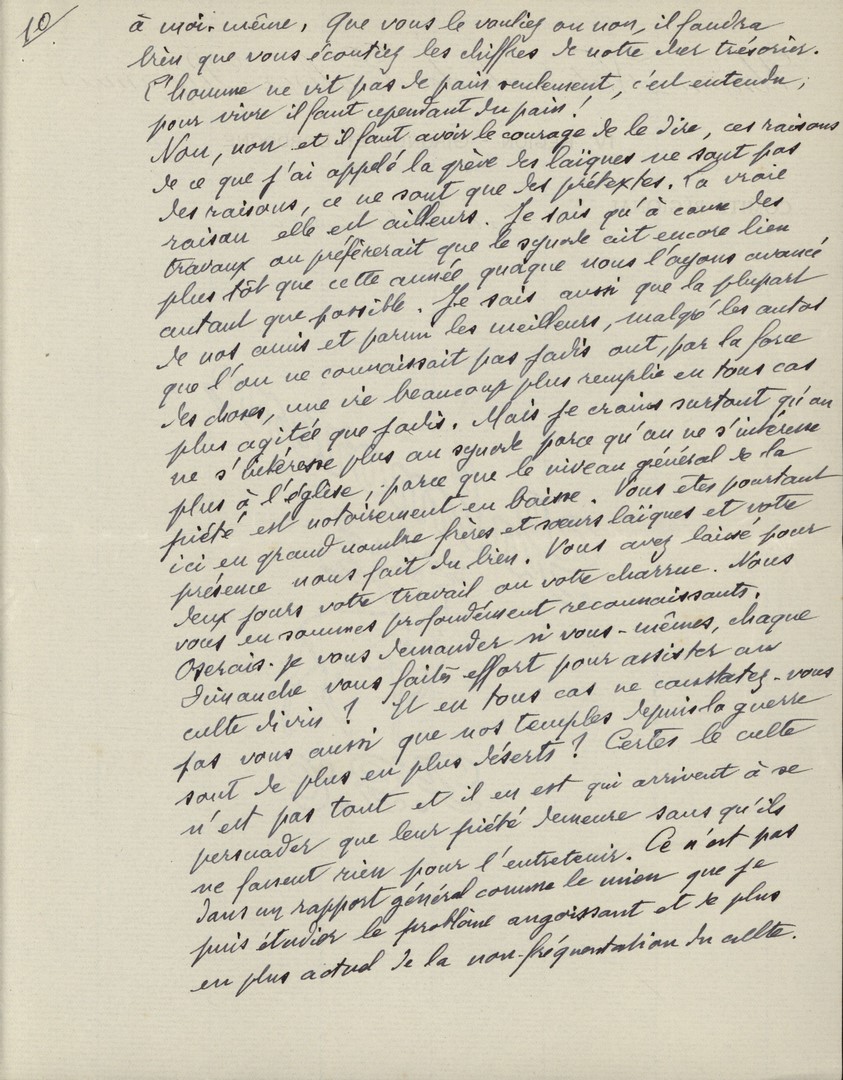 10/
à moi-même. Que vous le vouliez ou non, il faudra
bien que vous écoutiez les chiffres de notre cher trésorier.
L'homme ne vit pas de pain seulement, c'est entendu,
pour vivre il faut cependant du pain !
Non, non et il faut avoir le courage de le dire, ces raisons
de ce que j'ai appelé la grève des laïques ne sont pas
des raisons, ce ne sont que des prétextes. La vraie
raison elle est ailleurs. Je sais qu'à cause des
travaux on préfèrerait que le synode ait encore lieu
plus tôt que cette année quoique nous l'ayons avancé
autant que possible. Je sais aussi que la plupart
de nos amis et parmi les meilleurs, malgré les autos
que l'on ne connaissait pas jadis ont, par la force
des choses, une vie beaucoup plus remplie en tous cas
plus agitée que jadis. Mais je crains surtout qu'on
ne s'intéresse plus au synode parce qu'on ne s'intéresse
plus à l'église, parce que le niveau général de la
piété est notoirement en baisse. Vous etes pourtant
ici en grand nombre frères et sœurs laïques et votre
présence nous fait du bien. Vous avez laissé pour
deux jours votre travail ou votre charrue. Nous
vous en sommes profondément reconnaissants.
Oserais-je vous demander si vous-mêmes, chaque
Dimanche vous faites effort pour assister au
culte divin ? Et en tous cas ne constatez-vous
pas vous aussi que nos temples depuis la guerre
sont de plus en plus déserts ? Certes le culte
n'est pas tout et il en est qui arrivent à se
persuader que leur piété demeure sans qu'ils
ne fassent rien pour l'entretenir. Ce n'est pas
dans un rapport général comme le mien que je
puis étudier le problème angoissant et de plus
en plus actuel de la non-fréquentation du culte.